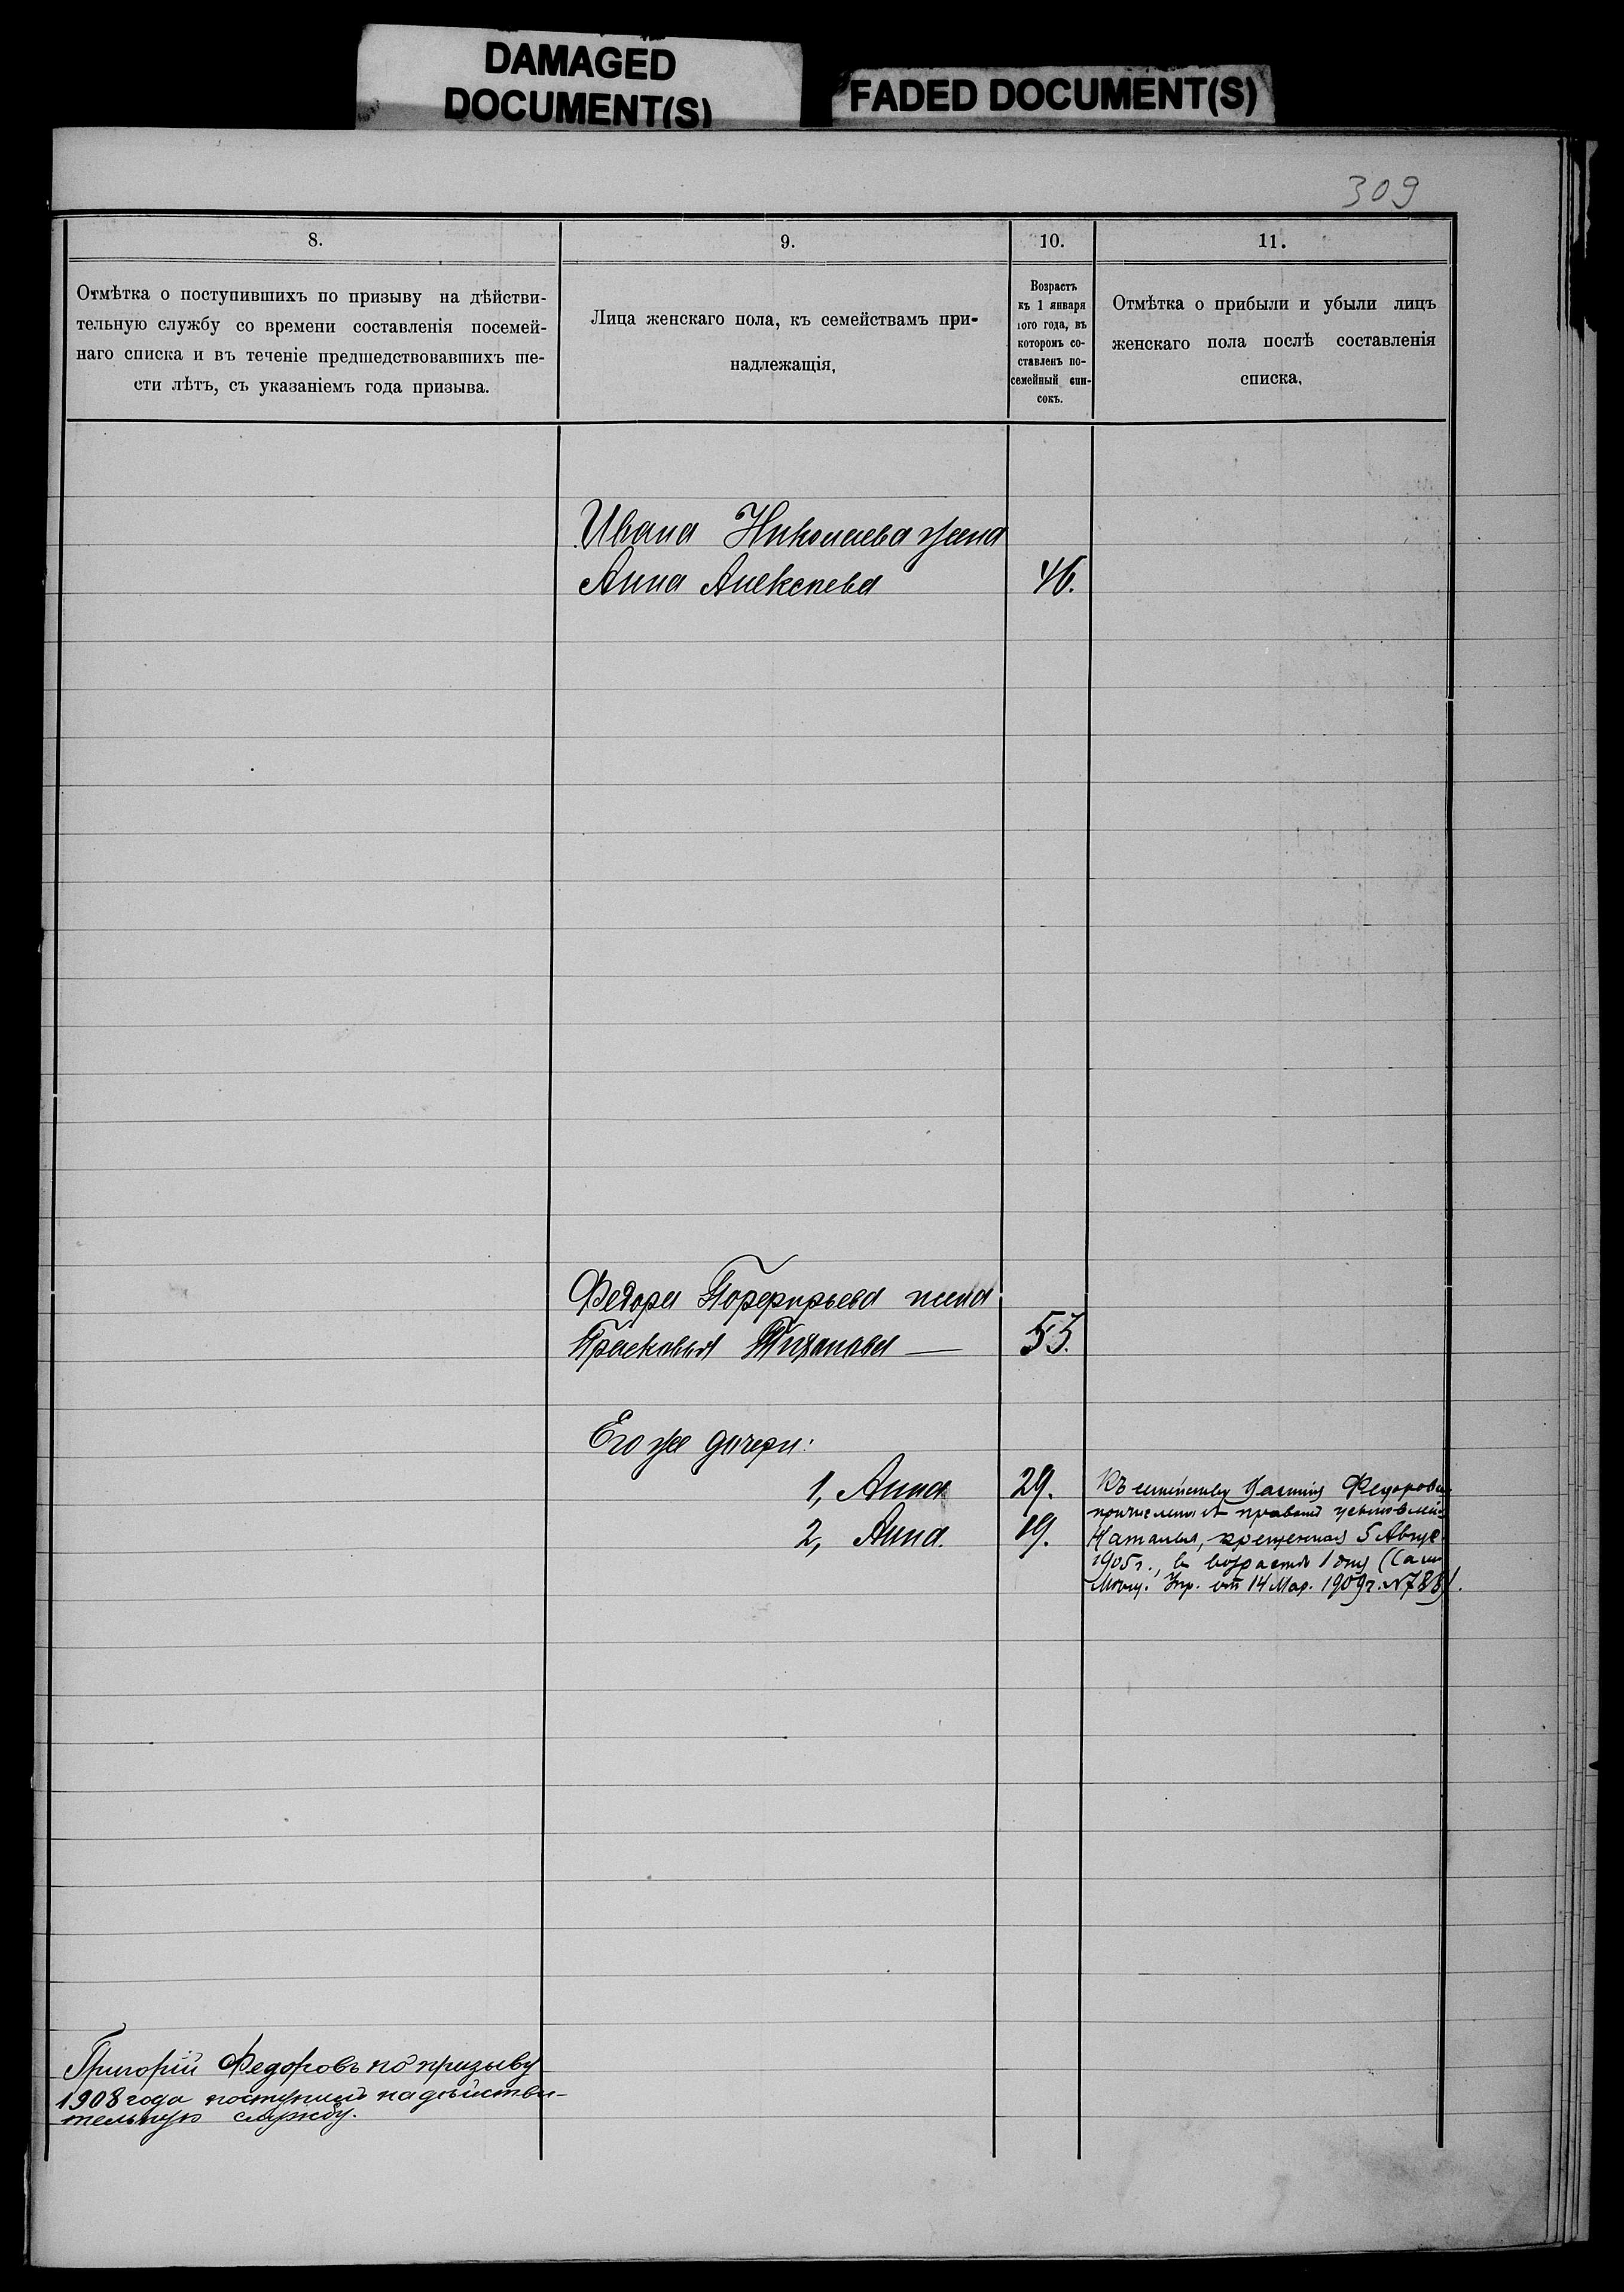 DAMAGED
DOCUMENT(S)
FADED DOCUMENT(S)
309
8.
9.
10.
11.
Отмѣтка о поступившихъ по призыву на дѣйстви-
тельную службу со времени составленія посемей-
наго списка и въ теченіе предшедствовавшихъ ше-
сти лѣтъ, съ указаніемъ года призыва.
Лица женскаго пола, къ семействамъ при-
надлежащія,
Возрастъ
къ 1 января
1ого года, въ
которомъ со-
ставленъ по-
семейный спи-
сокъ.
Отмѣтка о прибыли и убыли лицъ
женскаго пола послѣ составленія
списка,
Ивана Николаева жена
Анна Алексѣева
46.
Федора Порфирьева жена
Прасковья Тихонова —
53.
Его же дочери:
1, Анна
29.
2, Анна.
19.
Къ семейству Федорова
причислена
Наталья, крещенная 5 Авгус.
1905 г., въ возрастѣ 1 дня (
Мѣщ. Упр. отъ 14 Мар. 1909 г. №788).
Григорій Федоровъ по призыву
1908 года поступилъ на дѣйстви-
тельную службу.